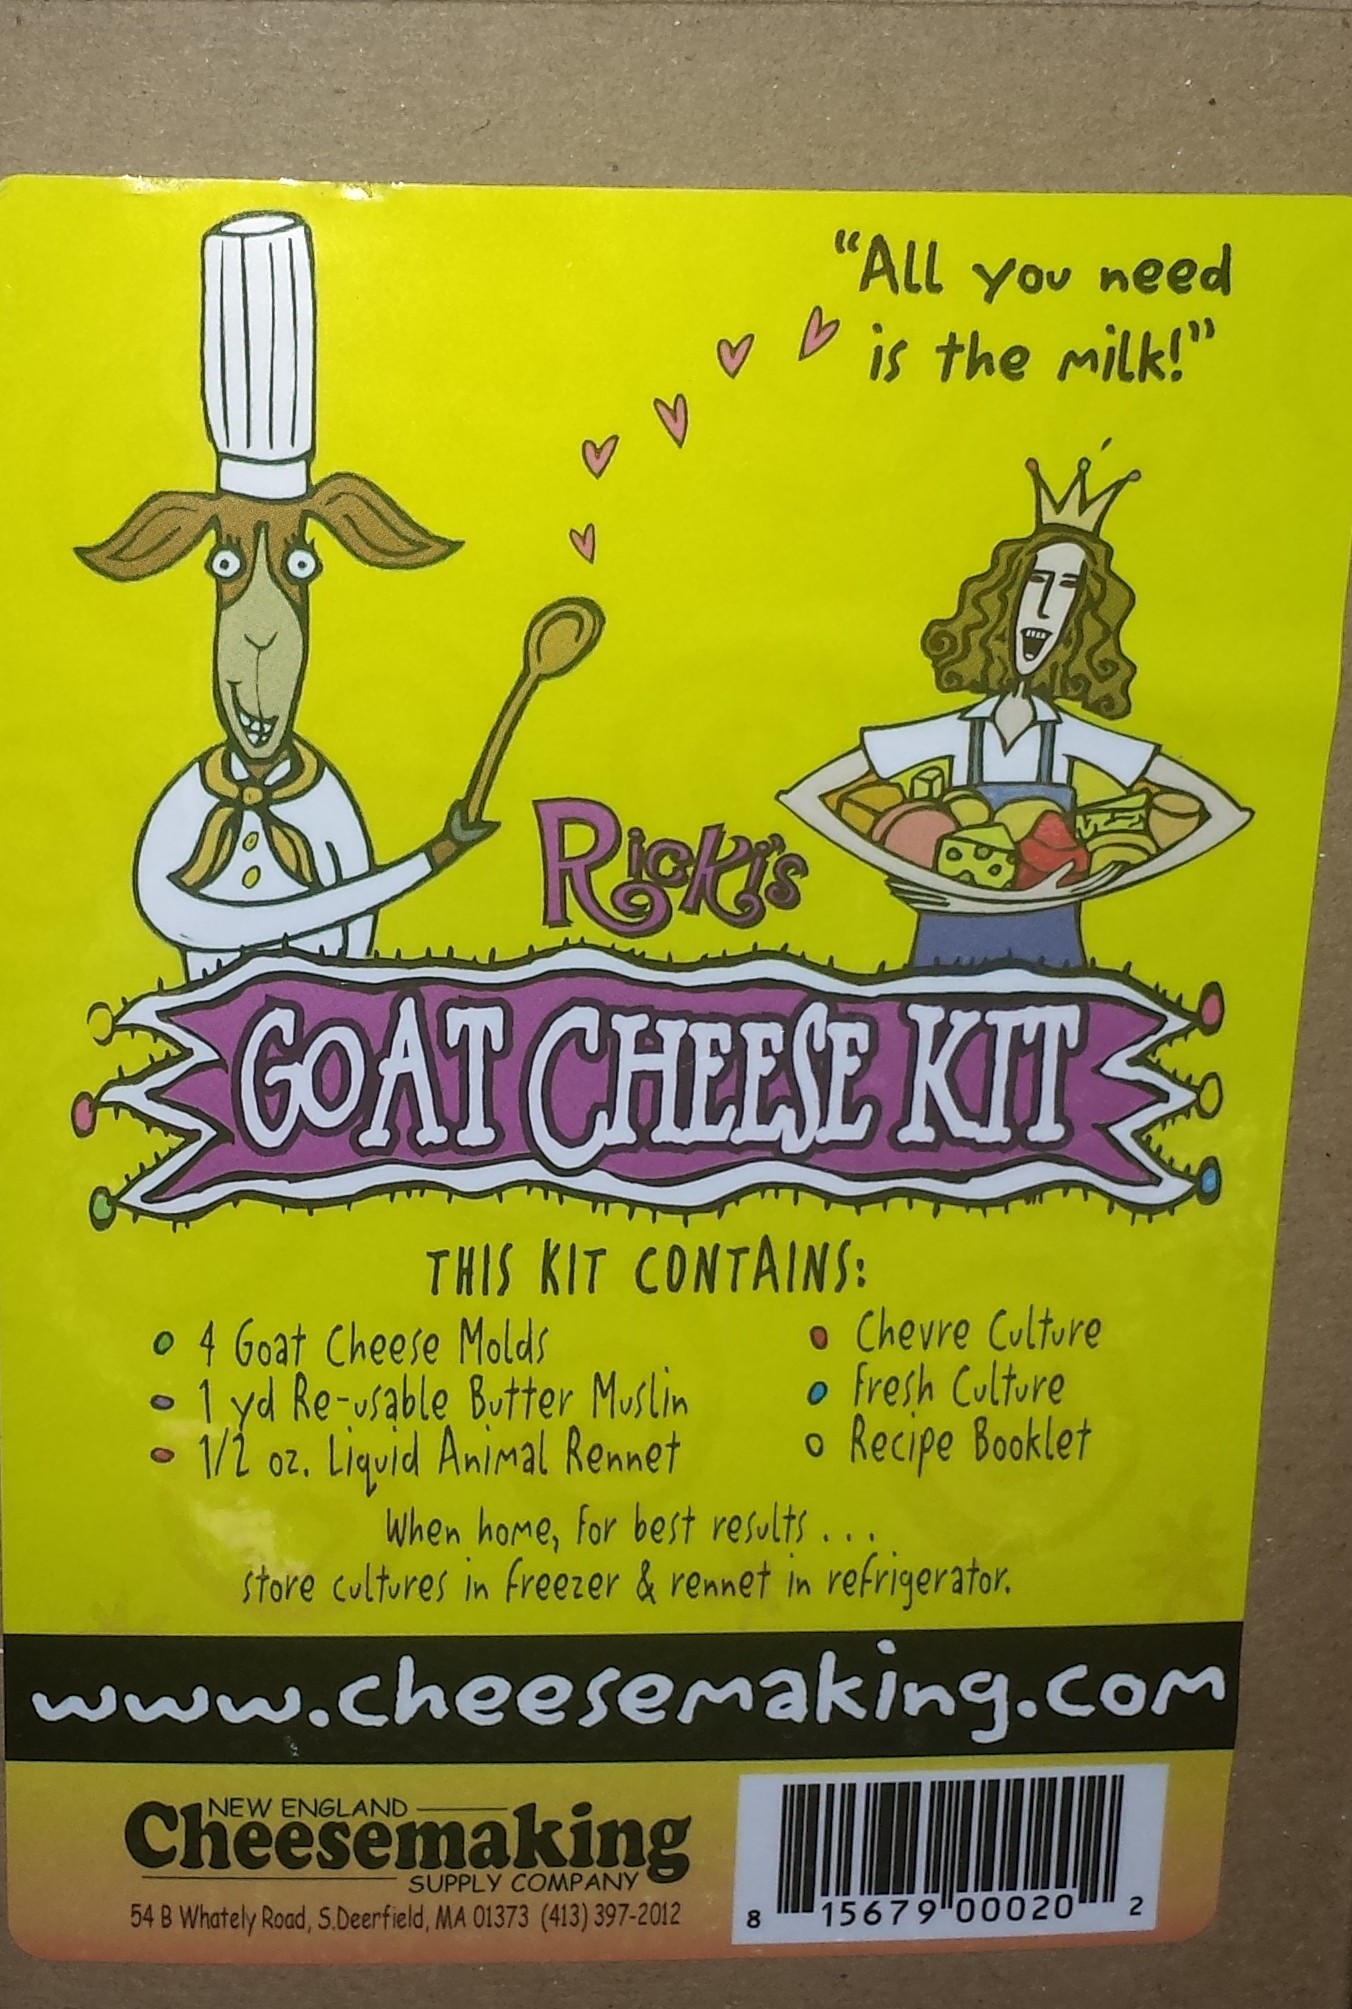 "All you need
is the milk!"
Ricki's
GOAT CHEESE KIT
THIS KIT CONTAINS:
4 Goat Cheese Molds
1 yd Re-usable Butter Muslin
1/2 oz. Liquid Animal Rennet
Chevre Culture
Fresh Culture
Recipe Booklet
When home, for best results . . .
store cultures in freezer & rennet in refrigerator.
www.cheesemaking.com
NEW ENGLAND
Cheesemaking
SUPPLY COMPANY
54 B Whately Road, S.Deerfield, MA 01373 (413) 397-2012
8 15679 00020 2